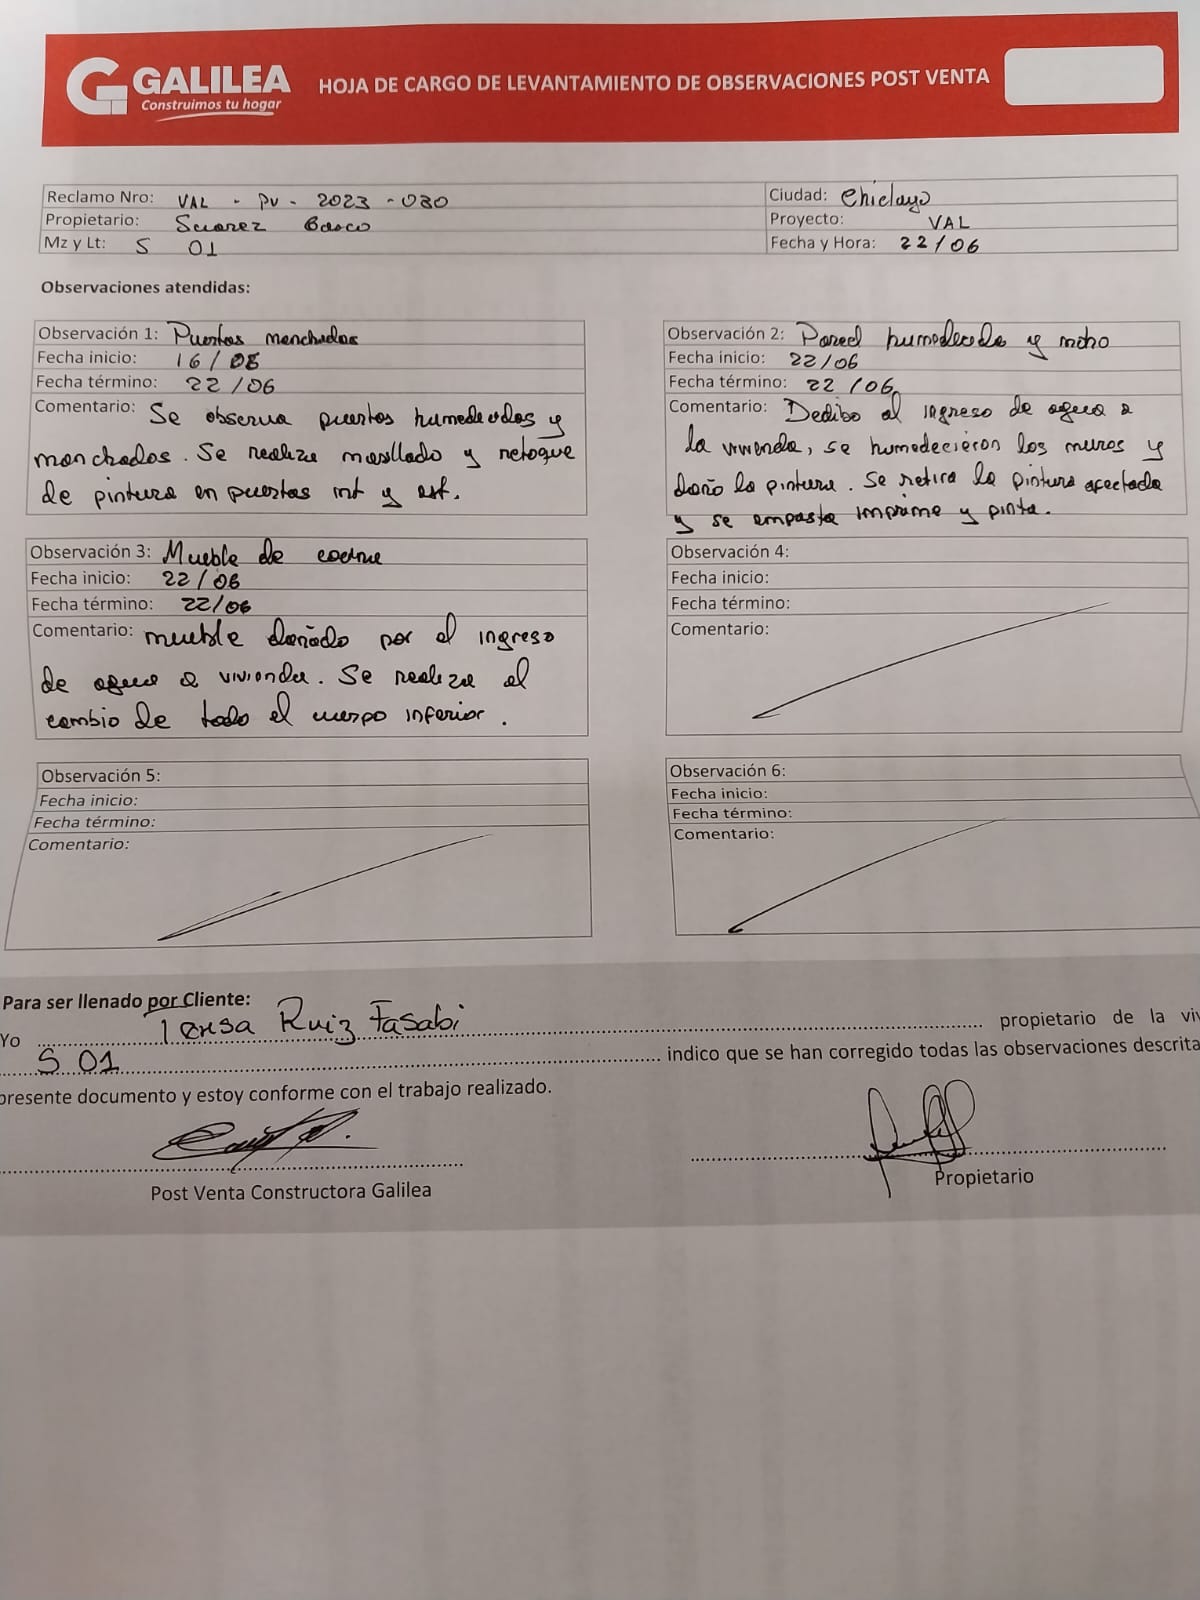 GALILEA
Construimos tu hogar
HOJA DE CARGO DE LEVANTAMIENTO DE OBSERVACIONES POST VENTA
Reclamo Nro: VAL - PV - 2023 - 030
Ciudad: Chiclayo
Propietario: Suarez Basco
Proyecto: VAL
Mz y Lt: S 01
Fecha y Hora: 22/06
Observaciones atendidas:
Observación 1: Puertas manchadas
Fecha inicio: 16/06
Fecha término: 22/06
Comentario: Se observa puertas humedecidas y
manchadas. Se realiza masillado y retoque
de pintura en puertas int y ext.
Observación 2: Pared humedecida y moho
Fecha inicio: 22/06
Fecha término: 22/06
Comentario: Dedibo al ingreso de agua a
la vivienda, se humedecieron los muros y
daño la pintura. Se retira la pintura afectada
y se empasta imprime y pinta.
Observación 3: Mueble de cocina
Fecha inicio: 22/06
Fecha término: 22/06
Comentario: mueble dañado por el ingreso
de agua a vivienda. Se realiza el
cambio de todo el cuerpo inferior.
Observación 4:
Fecha inicio:
Fecha término:
Comentario:
Observación 5:
Fecha inicio:
Fecha término:
Comentario:
Observación 6:
Fecha inicio:
Fecha término:
Comentario:
Para ser llenado por Cliente:
Yo Teresa Ruiz Fasabi propietario de la viv
S 01 indico que se han corregido todas las observaciones descrita
presente documento y estoy conforme con el trabajo realizado.
Post Venta Constructora Galilea
Propietario